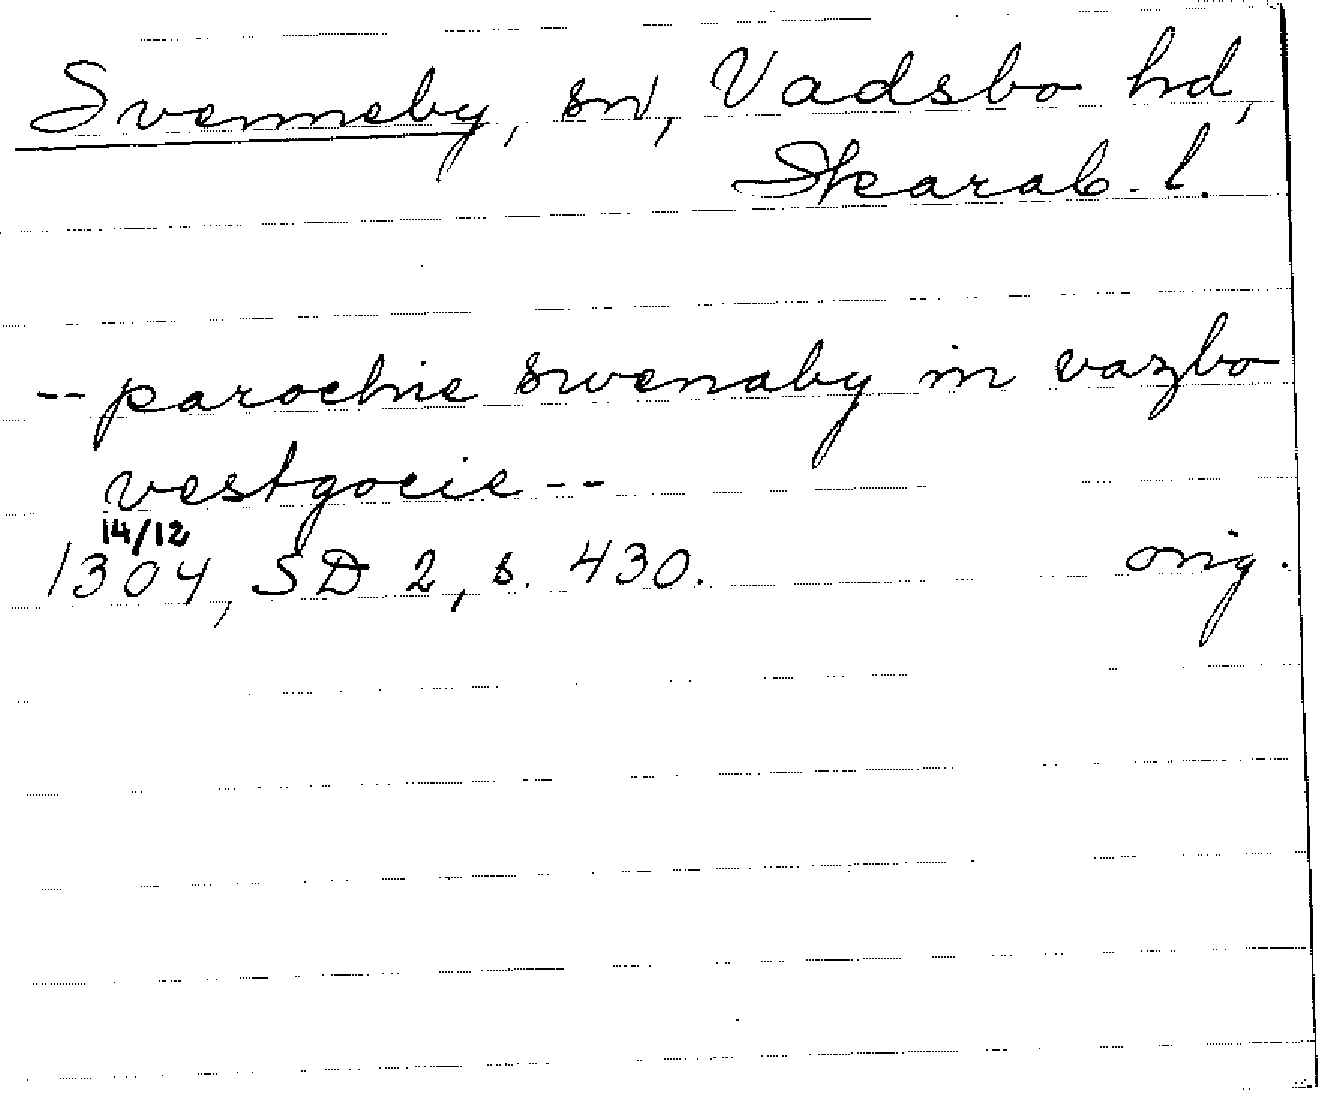 Svenneby, sn, Vadsbo hd,
Skarab. l.
-- parochie swenaby in vazbo
vestgocie --
14/12
1304, SD 2, s. 430. orig.